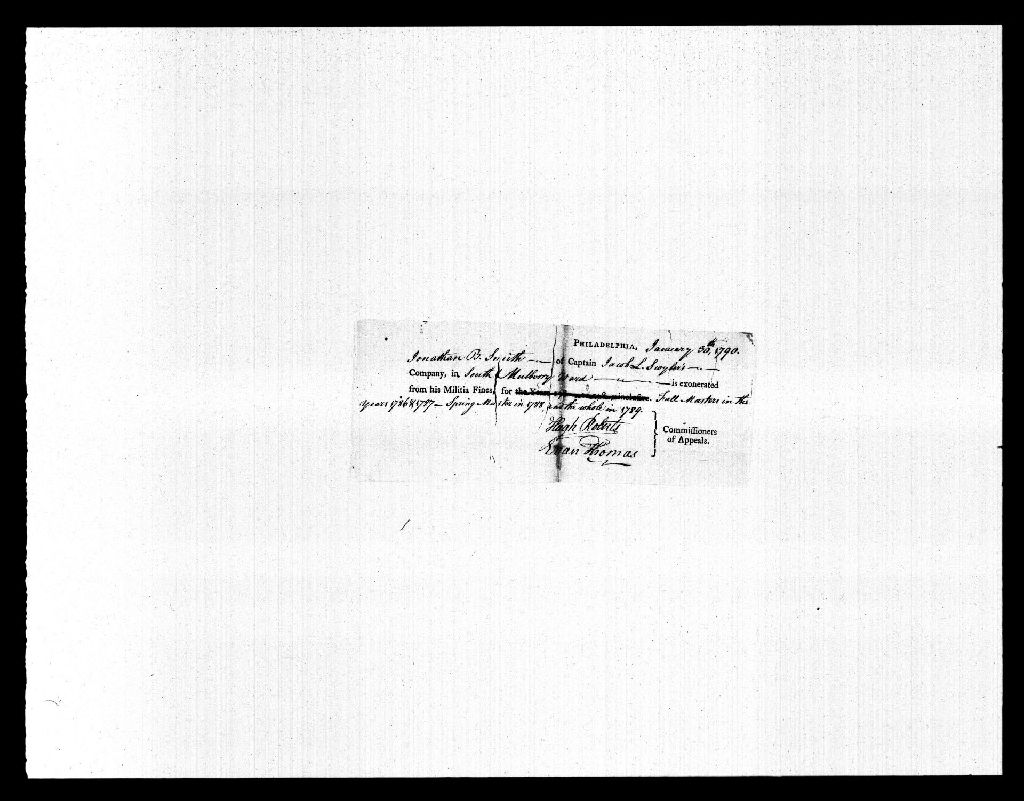 PHILADELPHIA, January 30th, 1790.
Jonathan B. Smith — of Captain Jacob L. Swyler's —
Company, in South Mulberry Ward — is exonerated
from his Militia Fines, for the Year Full Musters in the
years 1786 & 1787 — Spring Muster in 1788 and the whole in 1789.
Hugh Roberts
Evan Thomas
Commissioners
of Appeals.